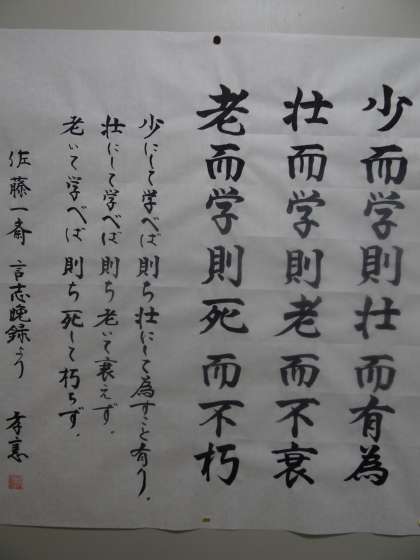 少而学則壮而有為
壮而学則老而不衰
老而学則死而不朽
少にして学べば則ち壮にして為すこと有り.
壮にして学べば則ち老いて衰えず.
老いて学べば則ち死して朽ちず.
佐藤一斎 言志晩録より